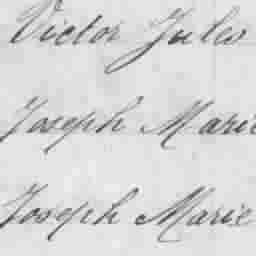 Victor Jules
Joseph Marie
Joseph Marie